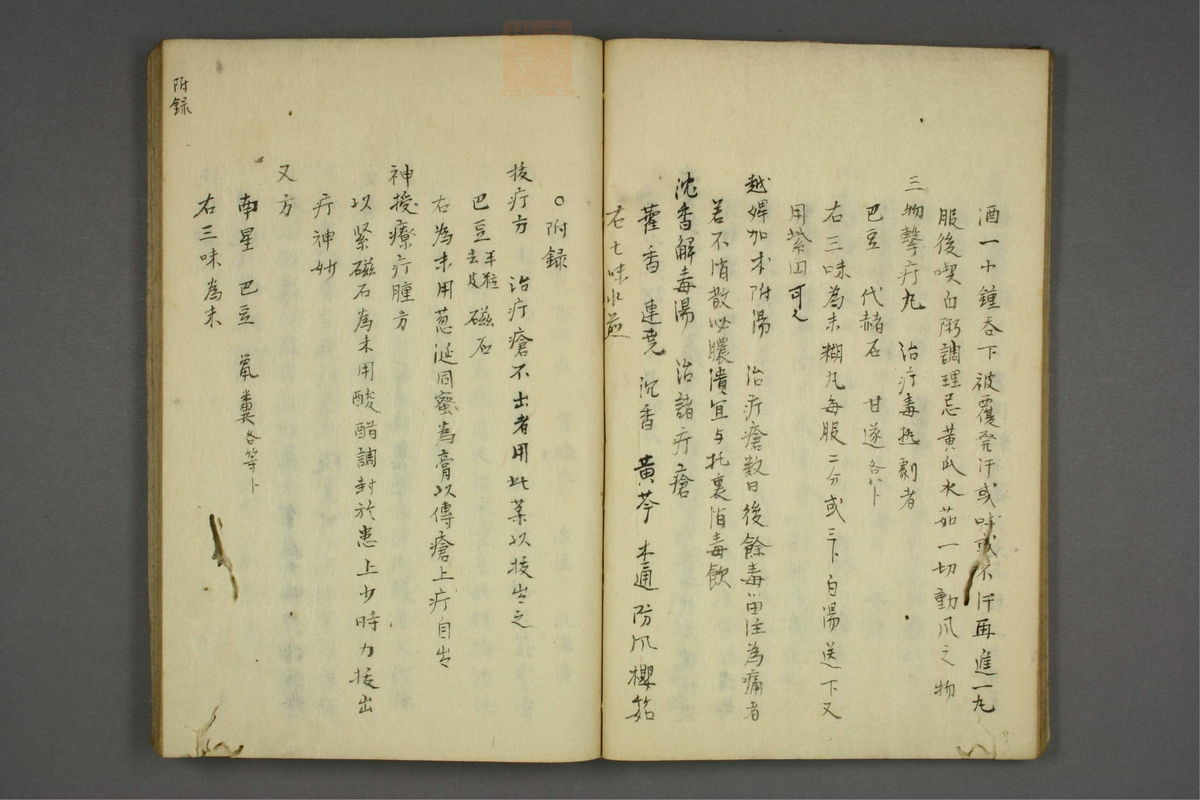 酒一小鐘吞下被覆発汗或吐或不汗再進一丸
服後喫白粥調理忌黄瓜水茄一切動風之物
三物撃疔丸 治疔毒熱劇者
巴豆 代赭石 甘遂各八卜
右三味為末糊丸每服二分或三卜白湯送下又
用紫円可
越婢加朮附湯 治疔瘡数日後餘毒留注為痛者
若不消散必膿潰宜与托裏消毒飲
沈香解毒湯 治諸疔瘡
藿香 連堯 沉香 黄芩 木通 防風 櫻
右七味水煎
○附録
抜疔方 治疔瘡不出者用此薬以抜出之
巴豆半粒去皮 磁石
右為末用葱涎同蜜為膏以傅瘡上疔自出
神授療疔腫方
以紧磁石為末用酸醋調封於患上少時力抜出
疔神妙
又方
南星 巴豆 鼠糞各等卜
右三味為末
附録